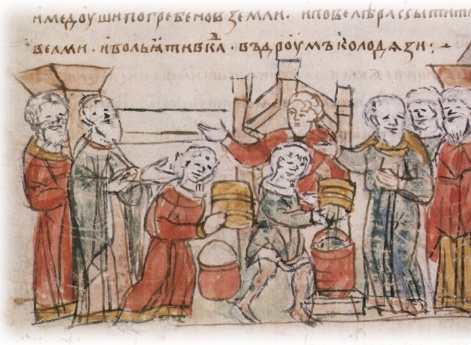 имедоушипогребеновземли · иповелѣрассытити
велми · ивольꙗтивкаⷣ · въдроумъколодязи :